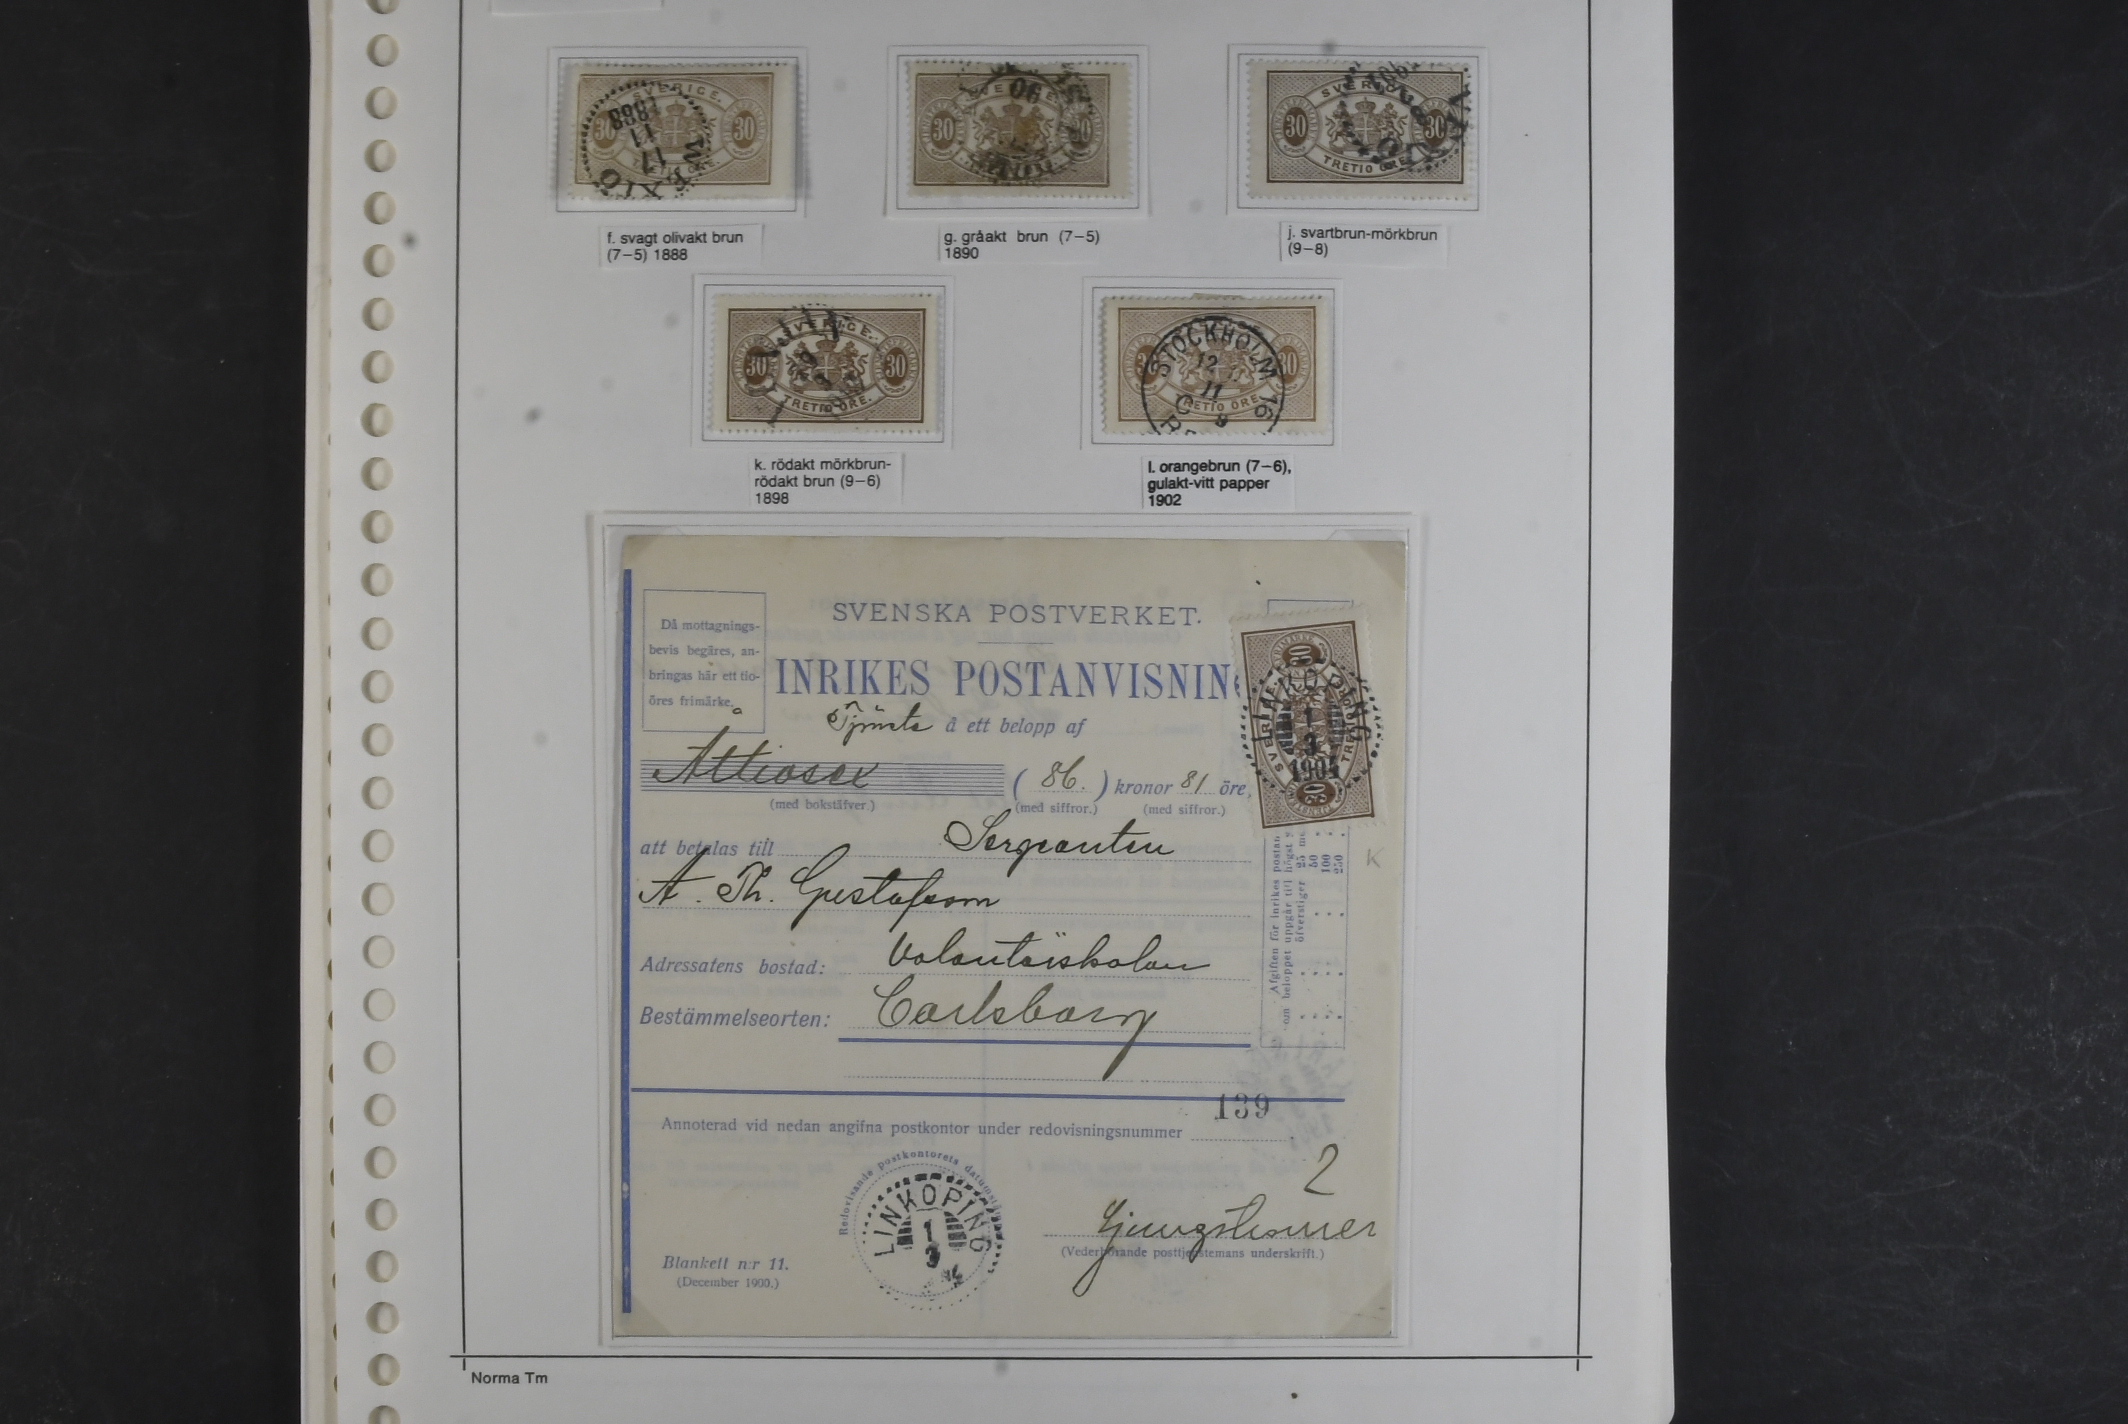 SVERIGE.
30 30
TRETIO ÖRE.
EKSJÖ
17
11
1888
f. svagt olivakt brun
(7–5) 1888
SVERIGE.
30
90
g. gråakt brun (7–5)
1890
SVERIGE.
30 30
TRETIO ÖRE.
j. svartbrun-mörkbrun
(9–8)
SVERIGE.
30 30
TRETIO ÖRE.
k. rödakt mörkbrun-
rödakt brun (9–6)
1898
STOCKHOLM 16
12
11
TRETIO ÖRE.
l. orangebrun (7–6),
gulakt-vitt papper
1902
Då mottagnings-
bevis begäres, an-
bringas här ett tio-
öres frimärke.
SVENSKA POSTVERKET.
INRIKES POSTANVISNING
Tjänste å ett belopp af
Attiosex (86.) kronor 81 öre,
(med bokstäfver.) (med siffror.) (med siffror.)
att betalas till Sergeanten
A. Th. Gustafsson
Adressatens bostad: Volontärskolan
Bestämmelseorten: Carlsborg
SVERIGE.
30 30
TRETIO ÖRE.
LINKÖPING
1
3
1904
Afgiften för inrikes postan
om beloppet uppgår till högst
öfverstiger 25
50
100
250
K
139
Annoterad vid nedan angifna postkontor under redovisningsnummer
2
Redovisande postkontorets datumstämpel
LINKÖPING
1
3
Ljungstrmer
(Vederbörande posttjenstemans underskrift.)
Blankett n:r 11.
(December 1900.)
Norma Tm